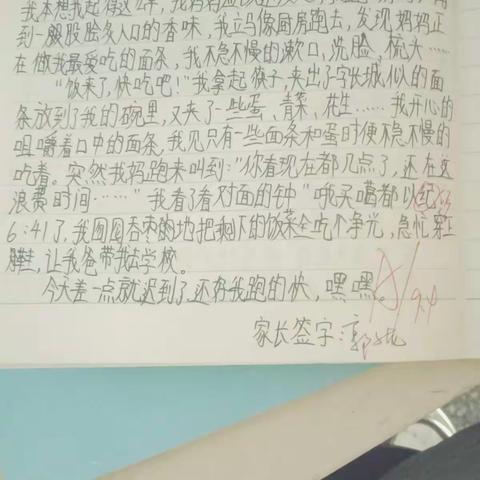 我本想我起得这么早,我妈妈应该
到一股股脍炙人口的香味,我立马像厨房跑去,发现妈妈正
在做我最爱吃的面条,我不急不慢的漱口,洗脸,梳头……
"饭来了,快吃吧!"我拿起筷子,夹出了字长城似的面
条放到了我的碗里,又夹了一些蛋、青菜、花生……我开心的
咀嚼着口中的面条,我见只有一些面条和蛋时便不急不慢的
吃着。突然我妈跑来叫到:"你看现在都几点了,还在这
浪费时间……"我看了看对面的钟"哦买噶都以纪
6:41了,我囫囵吞枣的地把剩下的饭菜全吃个净光,急忙穿上
鞋,让我爸带我去学校。
今天差一点就迟到了,还好我跑的快,嘿嘿。
A
9.4
家长签字:郭